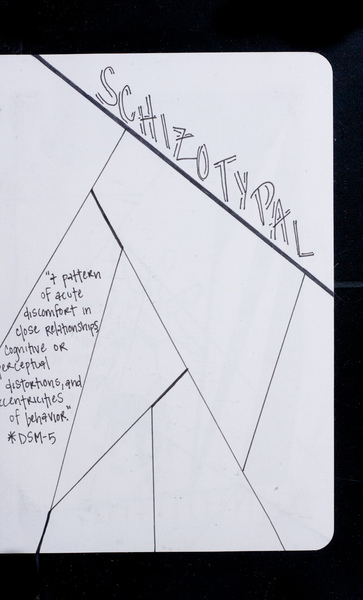 SCHIZOTYPAL
"A pattern
of acute
discomfort in
close relationships,
cognitive or
perceptual
distortions, and
eccentricities
of behavior."
*DSM-5